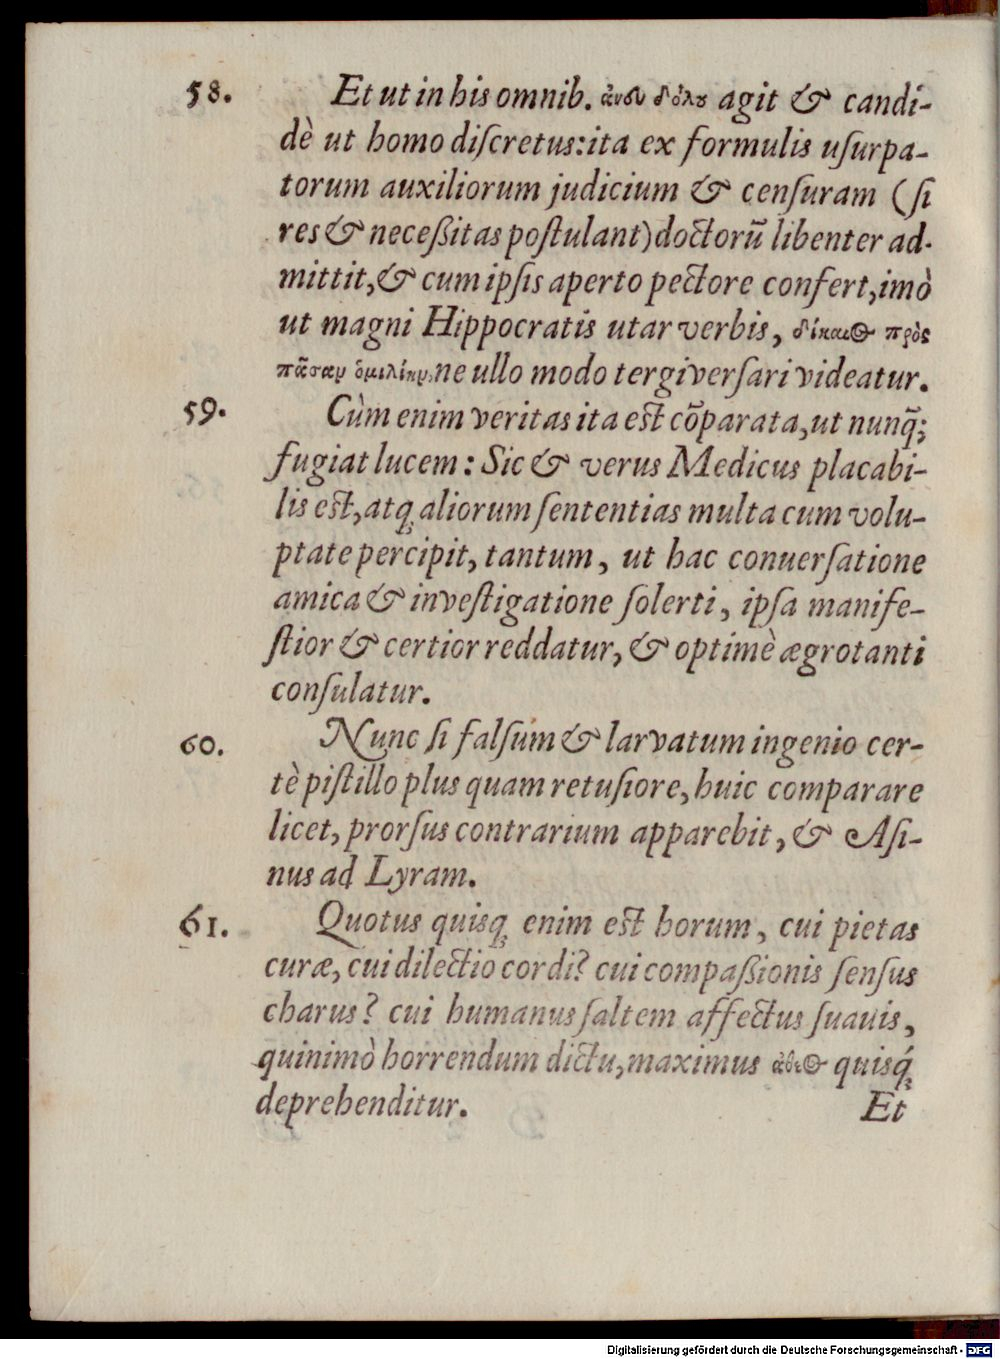 58. Et ut in his omnib. ἄνευ δόλου agit & candi-
dè ut homo diſcretus: ita ex formulis uſurpa-
torum auxiliorum judicium & cenſuram (ſi
res & neceßitas poſtulant) doctorũ libenter ad-
mittit, & cum ipſis aperto pectore confert, imò
ut magni Hippocratis utar verbis, δίκαιος πρὸς
πᾶσαν ὁμιλίην, ne ullo modo tergiverſari videatur.
59. Cùm enim veritas ita eſt cõparata, ut nunq̃;
fugiat lucem: Sic & verus Medicus placabi-
lis eſt, atq; aliorum ſententias multa cum volu-
ptate percipit, tantum, ut hac conuerſatione
amica & inveſtigatione ſolerti, ipſa manife-
ſtior & certior reddatur, & optimè ægrotanti
conſulatur.
60. Nunc ſi falſum & larvatum ingenio cer-
tè piſtillo plus quam retuſiore, huic comparare
licet, prorſus contrarium apparebit, & Aſi-
nus ad Lyram.
61. Quotus quisq; enim eſt horum, cui pietas
curæ, cui dilectio cordi? cui compaßionis ſenſus
charus? cui humanus ſaltem affectus ſuauis,
quinimò horrendum dictu, maximus ἄθεος quisq́;
deprehenditur.
Et
Digitalisierung gefördert durch die Deutsche Forschungsgemeinschaft - DFG